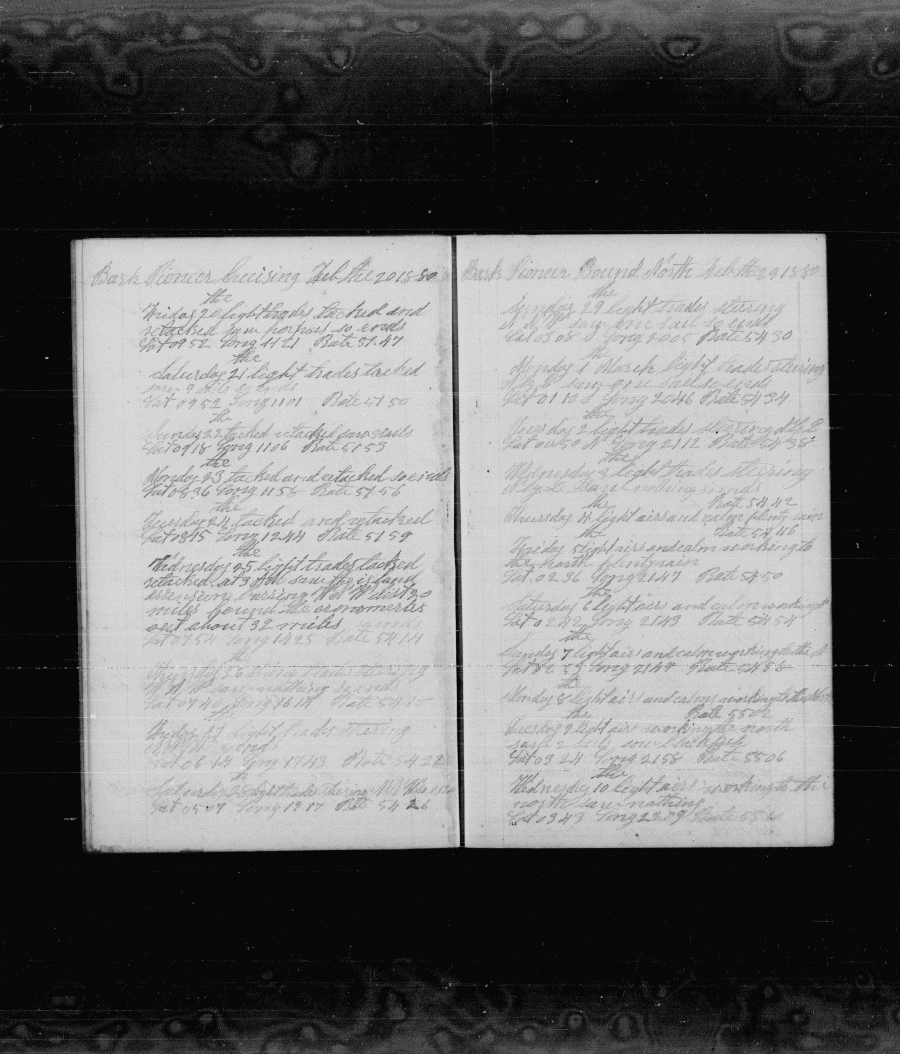 Bark Pioneer Cruising Feb the 20 1880
the
Friday 20 light trades tacked and
retacked saw porpus so ends
Lat 09 52 Long 11 21 Rate 51.47
the
Saturday 21 light trades tacked
so ends
Lat 09 52 Long 11 01 Rate 51 50
the
Sunday 22 tacked retacked saw sails
Lat 09 18 Long 11 06 Rate 51 53
the
Monday 23 tacked and retacked so ends
Lat 08 36 Long 11 56 Rate 51 56
the
Tuesday 24 tacked and retacked
Lat 08 45 Long 12 44 Rate 51 59
the
Wednesday 25 light trades tacked
retacked at 3 PM saw the island
asension barring W dist 20
miles found the cronometer
out about 32 miles so ends
Lat 07 54 Long 14 25 Rate 54 14
the
Thursday 26 strong trades steering
N W saw nothing so ends
Lat 07 40 Long 16 18 Rate 54 18
the
Friday 27 light trades stearing
so ends
Lat 06 14 Long 17 43 Rate 54 22
the
Saturday 28 light trades stearing
Lat 05 07 Long 19 17 Rate 54 26
Bark Pioneer Bound North Feb the 29 1880
the
Sunday 29 light trades steering
N W saw one sail so ends
Lat 03 08 S Long 20 05 Rate 54 30
the
Monday 1 March light trades steering
N by saw one sail so ends
Lat 01 10 S Long 20 46 Rate 54 34
the
Tuesday 2 light trades steering
Lat 00 50 N Long 21 12 Rate 54 38
the
Wednesday 3 light trades steering
N by saw nothing so ends
the Rate 54 42
Thursday 4 light airs and calm plenty rain
the Rate 54 46
Friday 5 light airs and calm working to
the north plenty rain
Lat 02 36 Long 21 47 Rate 54 50
the
Saturday 6 light airs and calm working
Lat 02 42 Long 21 43 Rate 54 54
the
Sunday 7 light airs and calm working to the N
Lat 02 Long 21 48 Rate 54 58
the
Monday 8 light airs and calms working to the
the Rate 55 02
Tuesday 9 light airs working the north
saw 2 sails saw blackfish
Lat 03 24 Long 21 58 Rate 55 06
the
Wednesday 10 light airs working to the
north saw nothing
Lat 03 43 Long 22 09 Rate 55 10